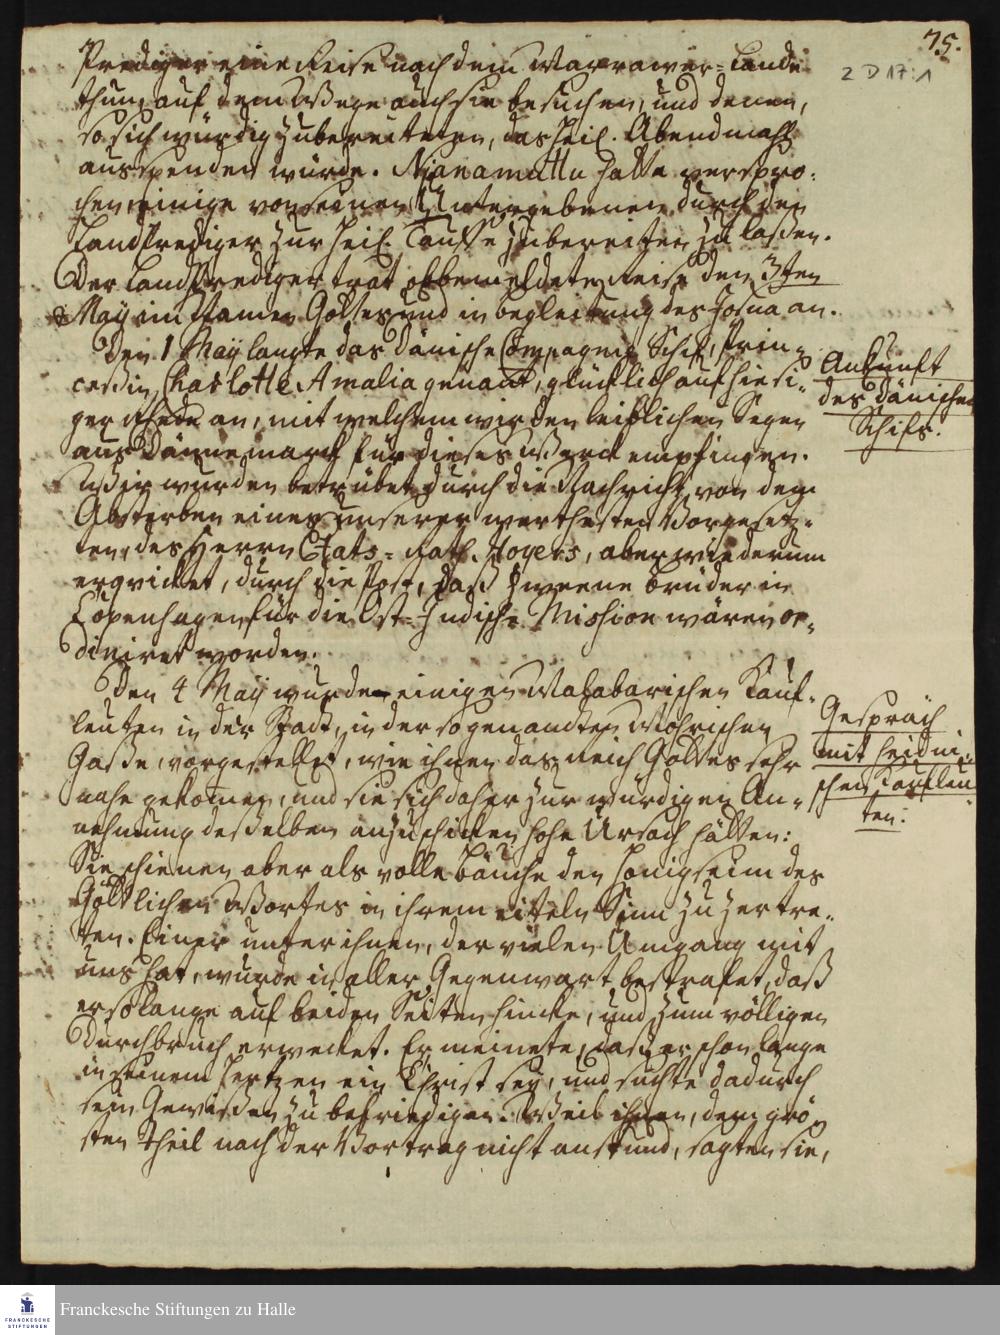 75.
2 D 17:1
Prediger eine Reise nach dem Marrawer-Lande
thun, auf dem Wege auch sie besuchen, und denen,
so sich würdig zubereiteten, das Heil. Abendmahl
ausspenden würde. Njanamuttu hatte verspro-
chen, einige von seinen Untergebenen durch den
Landprediger zur heil. Tauffe zubereiten zu lassen.
Der Landprediger trat obbemeldete Reise den 3ten
May im Namen Gottes und in begleitung des Josua an.
Den 1 May langte das Dänische Compagnie Schif, Prin-
cessin Charlotte Amalia genant, glücklich auf hiesi-
ger Rhede an, mit welchem wir den leiblichen Segen
aus Dännemarck für dieses Werck empfingen.
Wir wurden betrübet durch die Nachricht von dem
Absterben eines unserer werthesten Vorgesetz-
ten, des Herrn Etats-Rath Hoyers, aber wiederum
erqvicket, durch die Post, daß zweene Brüder in
Copenhagen für die Ost-Indische Mission wären or-
diniret worden.
Ankunft
des Dänischen
Schifs.
Den 4 May wurde einigen Malabarischen Kauf-
leuten in der Stadt, in der so genandten Mohrischen
Gasse, vorgestellet, wie ihnen das Reich Gottes sehr
nahe gekomen, und sie sich daher zur würdigen An-
nehmung desselben anzuschicken hohe Ursach hätten:
Sie schienen aber als volle Bäuche den Honigseim des
Göttlichen Wortes in ihrem eiteln Sinn zu zertre-
ten. Einer unter ihnen, der vielen Umgang mit
uns hat, wurde in aller Gegenwart bestrafet, daß
er so lange auf beiden Seiten hincke, und zum völligen
Durchbruch erwecket. Er meinete, daß er schon lange
in seinem Hertzen ein Christ sey, und suchte dadurch
sein Gewissen zu befriedigen. Weil ihnen, dem grö-
sten Theil nach der Vortrag nicht anstund, sagten sie,
Gespräch
mit heidni-
schen Kaufleu-
ten.
FRANCKESCHE
STIFTUNGEN
Franckesche Stiftungen zu Halle